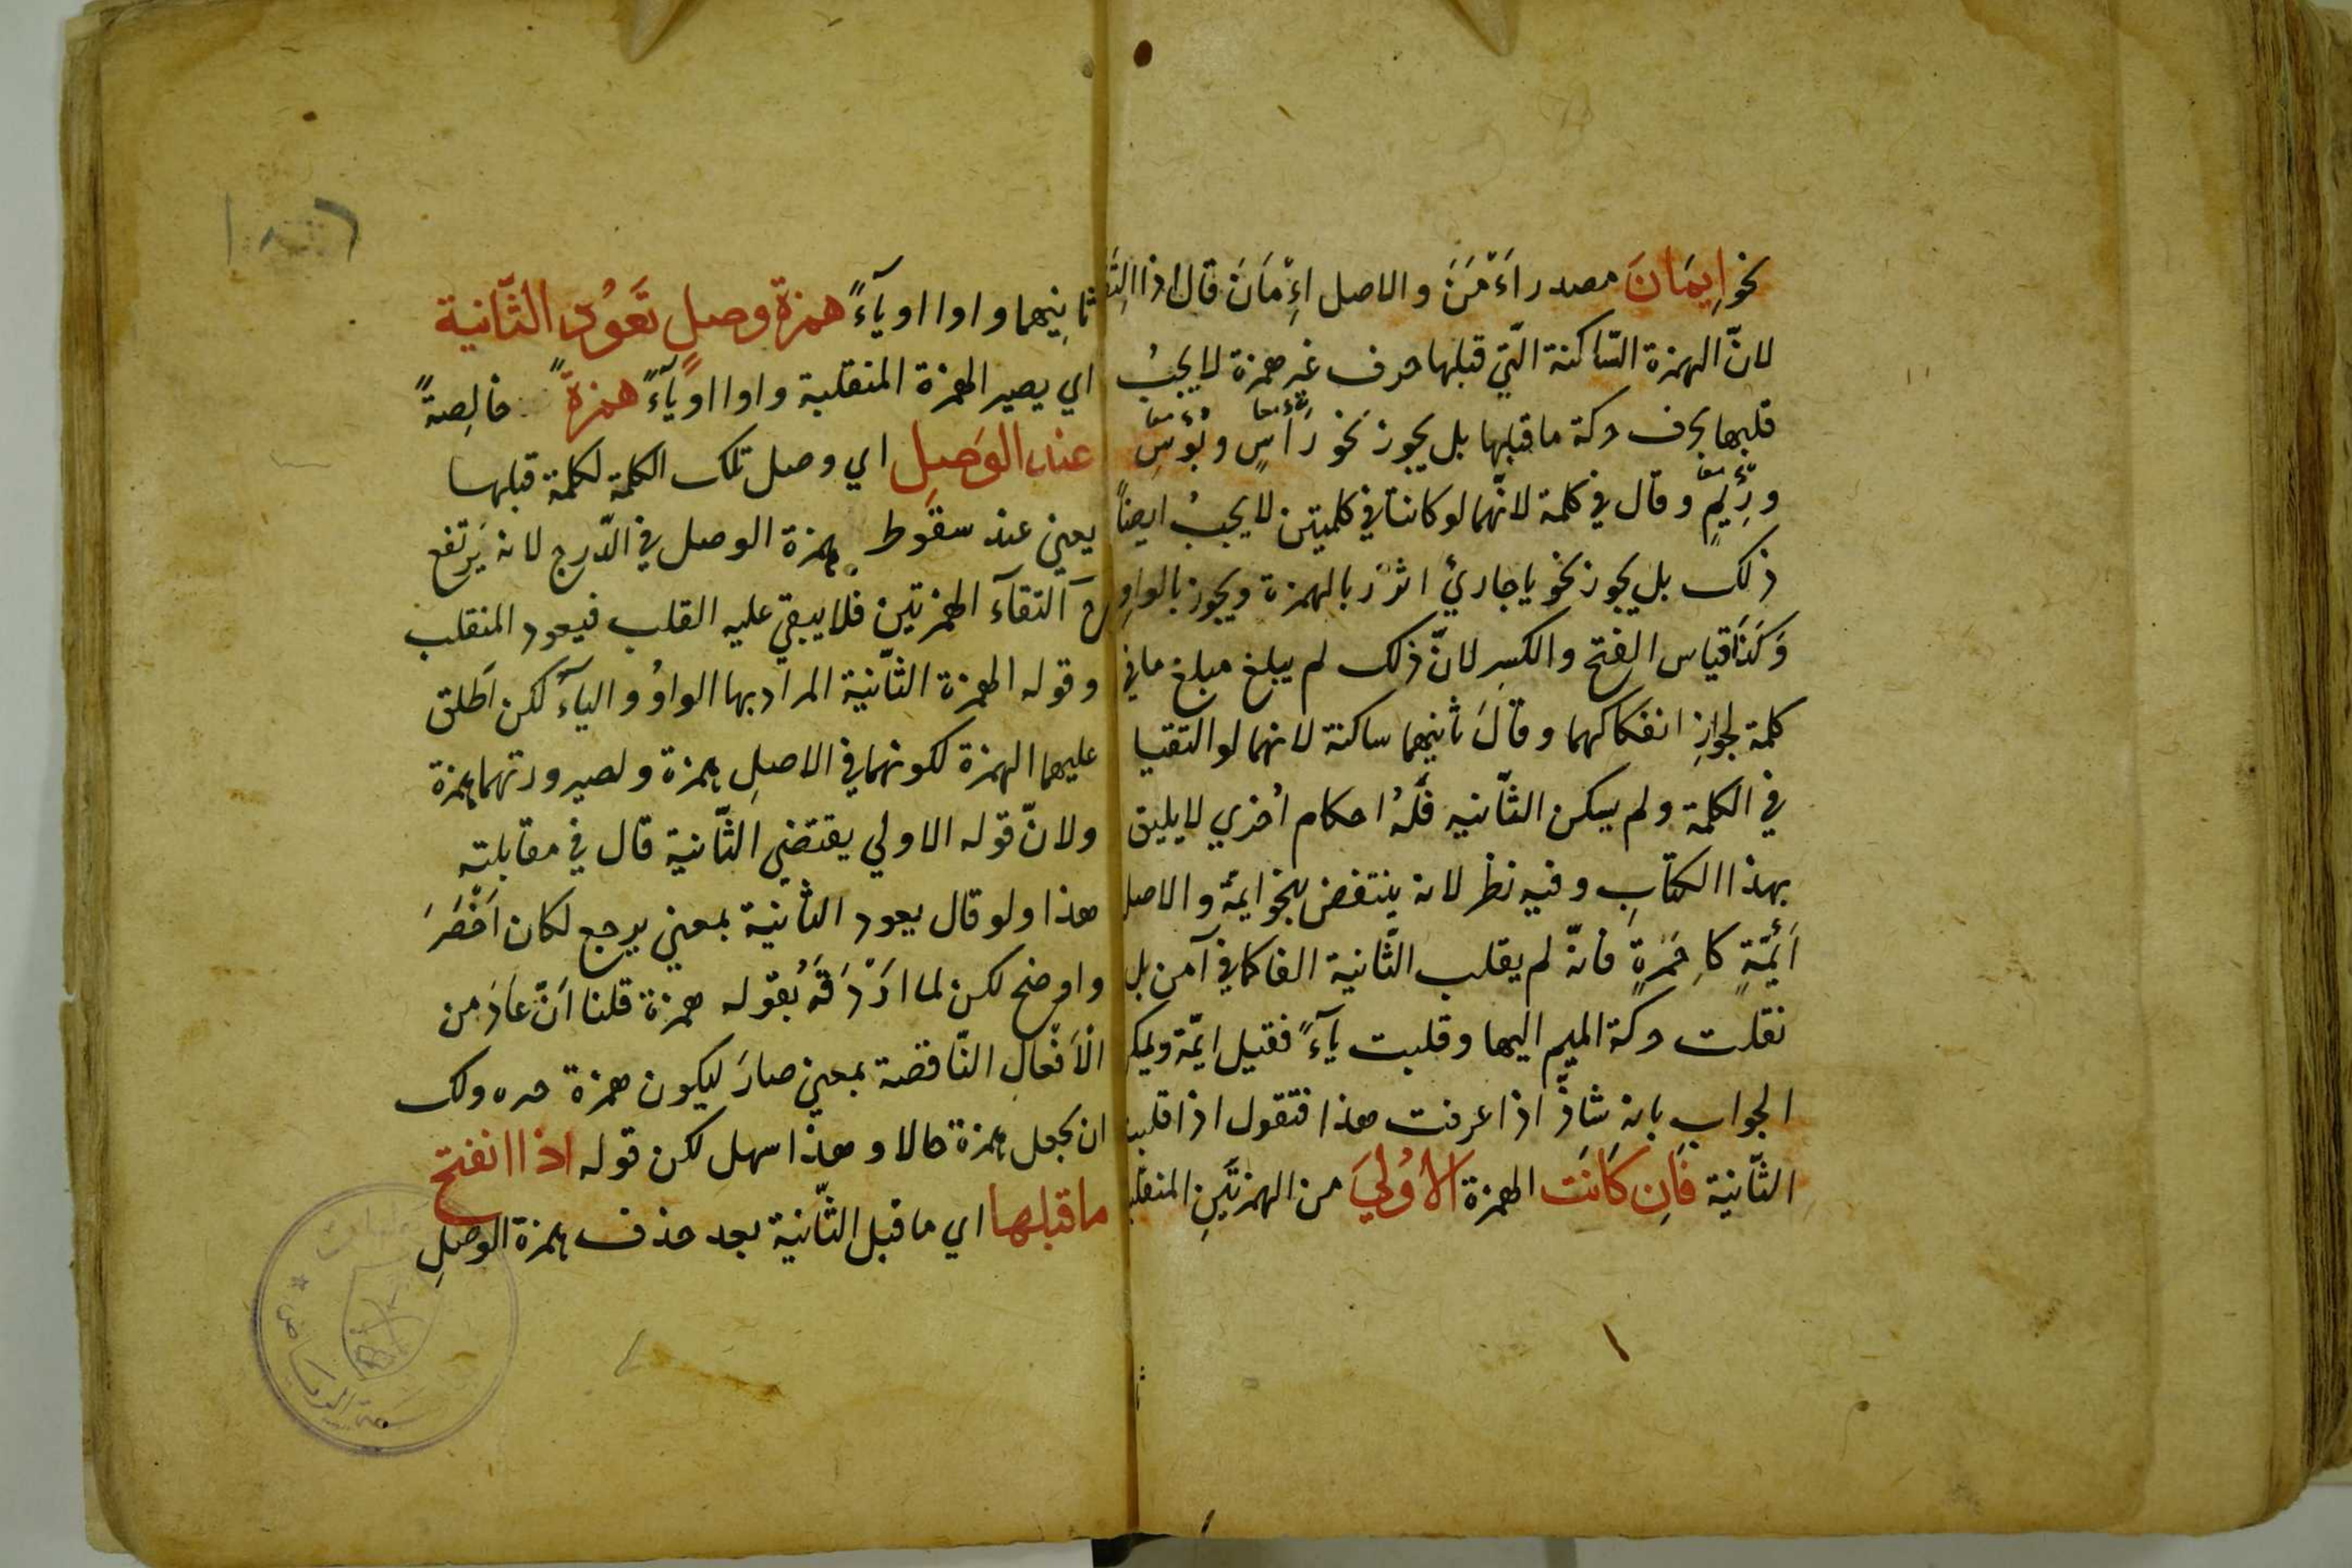 نحو اِيمَانَ مصدر اءَمَنَ والاصل اءِمَانَ قال اذا التقتا
لانّ الهمزة السّاكنة الّتي قبلها حرف غير همزة لا يجبُ
قلبها بحرف حركة ما قبلها بل يجوز نحو رَأسٍ وبُؤسٍ
ورِئمٍ وقال في كلمة لانّهما لو كانتا في كلمتين لا يجبُ ايضاً
ذلك بل يجوز نحو يا جارئ ائزر بالهمزة ويجوز بالواوِ
وَكَذَا قياس الفتح والكسرِ لانّ ذلك لم يبلغ مبلغ ما في
كلمة لجوازِ انفكاكهما وقالَ ثانيهما ساكنة لانهما لو التقتا
في الكلمة ولم يسكن الثّانيه فَلَهُ احكام اُخري لا يليق
بهذا الكتابِ وفيه نظر لانه ينتقض بنحو ايمة والاصل
اَئِمّة كاَحْمِرَةٍ فانّه لم يقلب الثّانية الفا كما في آمن بل
نقلت حركة الميم اليها وقلبت يآءً فقيل ايمّة ويمكن
الجواب بانه شاذّ اذا عرفت هذا فتقول اذا قلبت
الثّانية فَاِن كَانَت الهمزة الاُوليَ من الهمزتَينِ المنقلب
ثانِيهما واوا او يآءً همزة وصلٍ تَعَوُد الثّانية
اي يصير الهمزة المنقلبة واوا او يآءً همزةً خالِصةً
عند الوَصِلِ اي وصل تلك الكلمة لكلمة قبلها
يعني عند سقوط همزة الوصل في الدّرج لانه يَرتفع
ح التقآء الهمزتين فلا يبقي عليه القلب فيعود المنقلب
وقوله الهمزة الثّانية المراد بها الواوُ والياءُ لكن اَطلق
عليهما الهمزة لكونهما في الاصلِ همزة ولصيرورتهما همزة
ولانّ قوله الاولي يقتضي الثّانية قال في مقابلته
هذا ولو قال يعود الثّانية بمعني يرجع لكان اَخْصَرَ
واوضح لكن لما اَرْدَفَهُ بقوله همزة قلنا اَنّ عَادَ من
الاَفعالِ النّاقصة بمعني صارَ ليكون همزة خبره ولك
ان يجعل همزة حالا وهذا سهل لكن قوله اذا انفتح
ما قبلها اي ما قبل الثّانية بعد حذف همزة الوصلِ